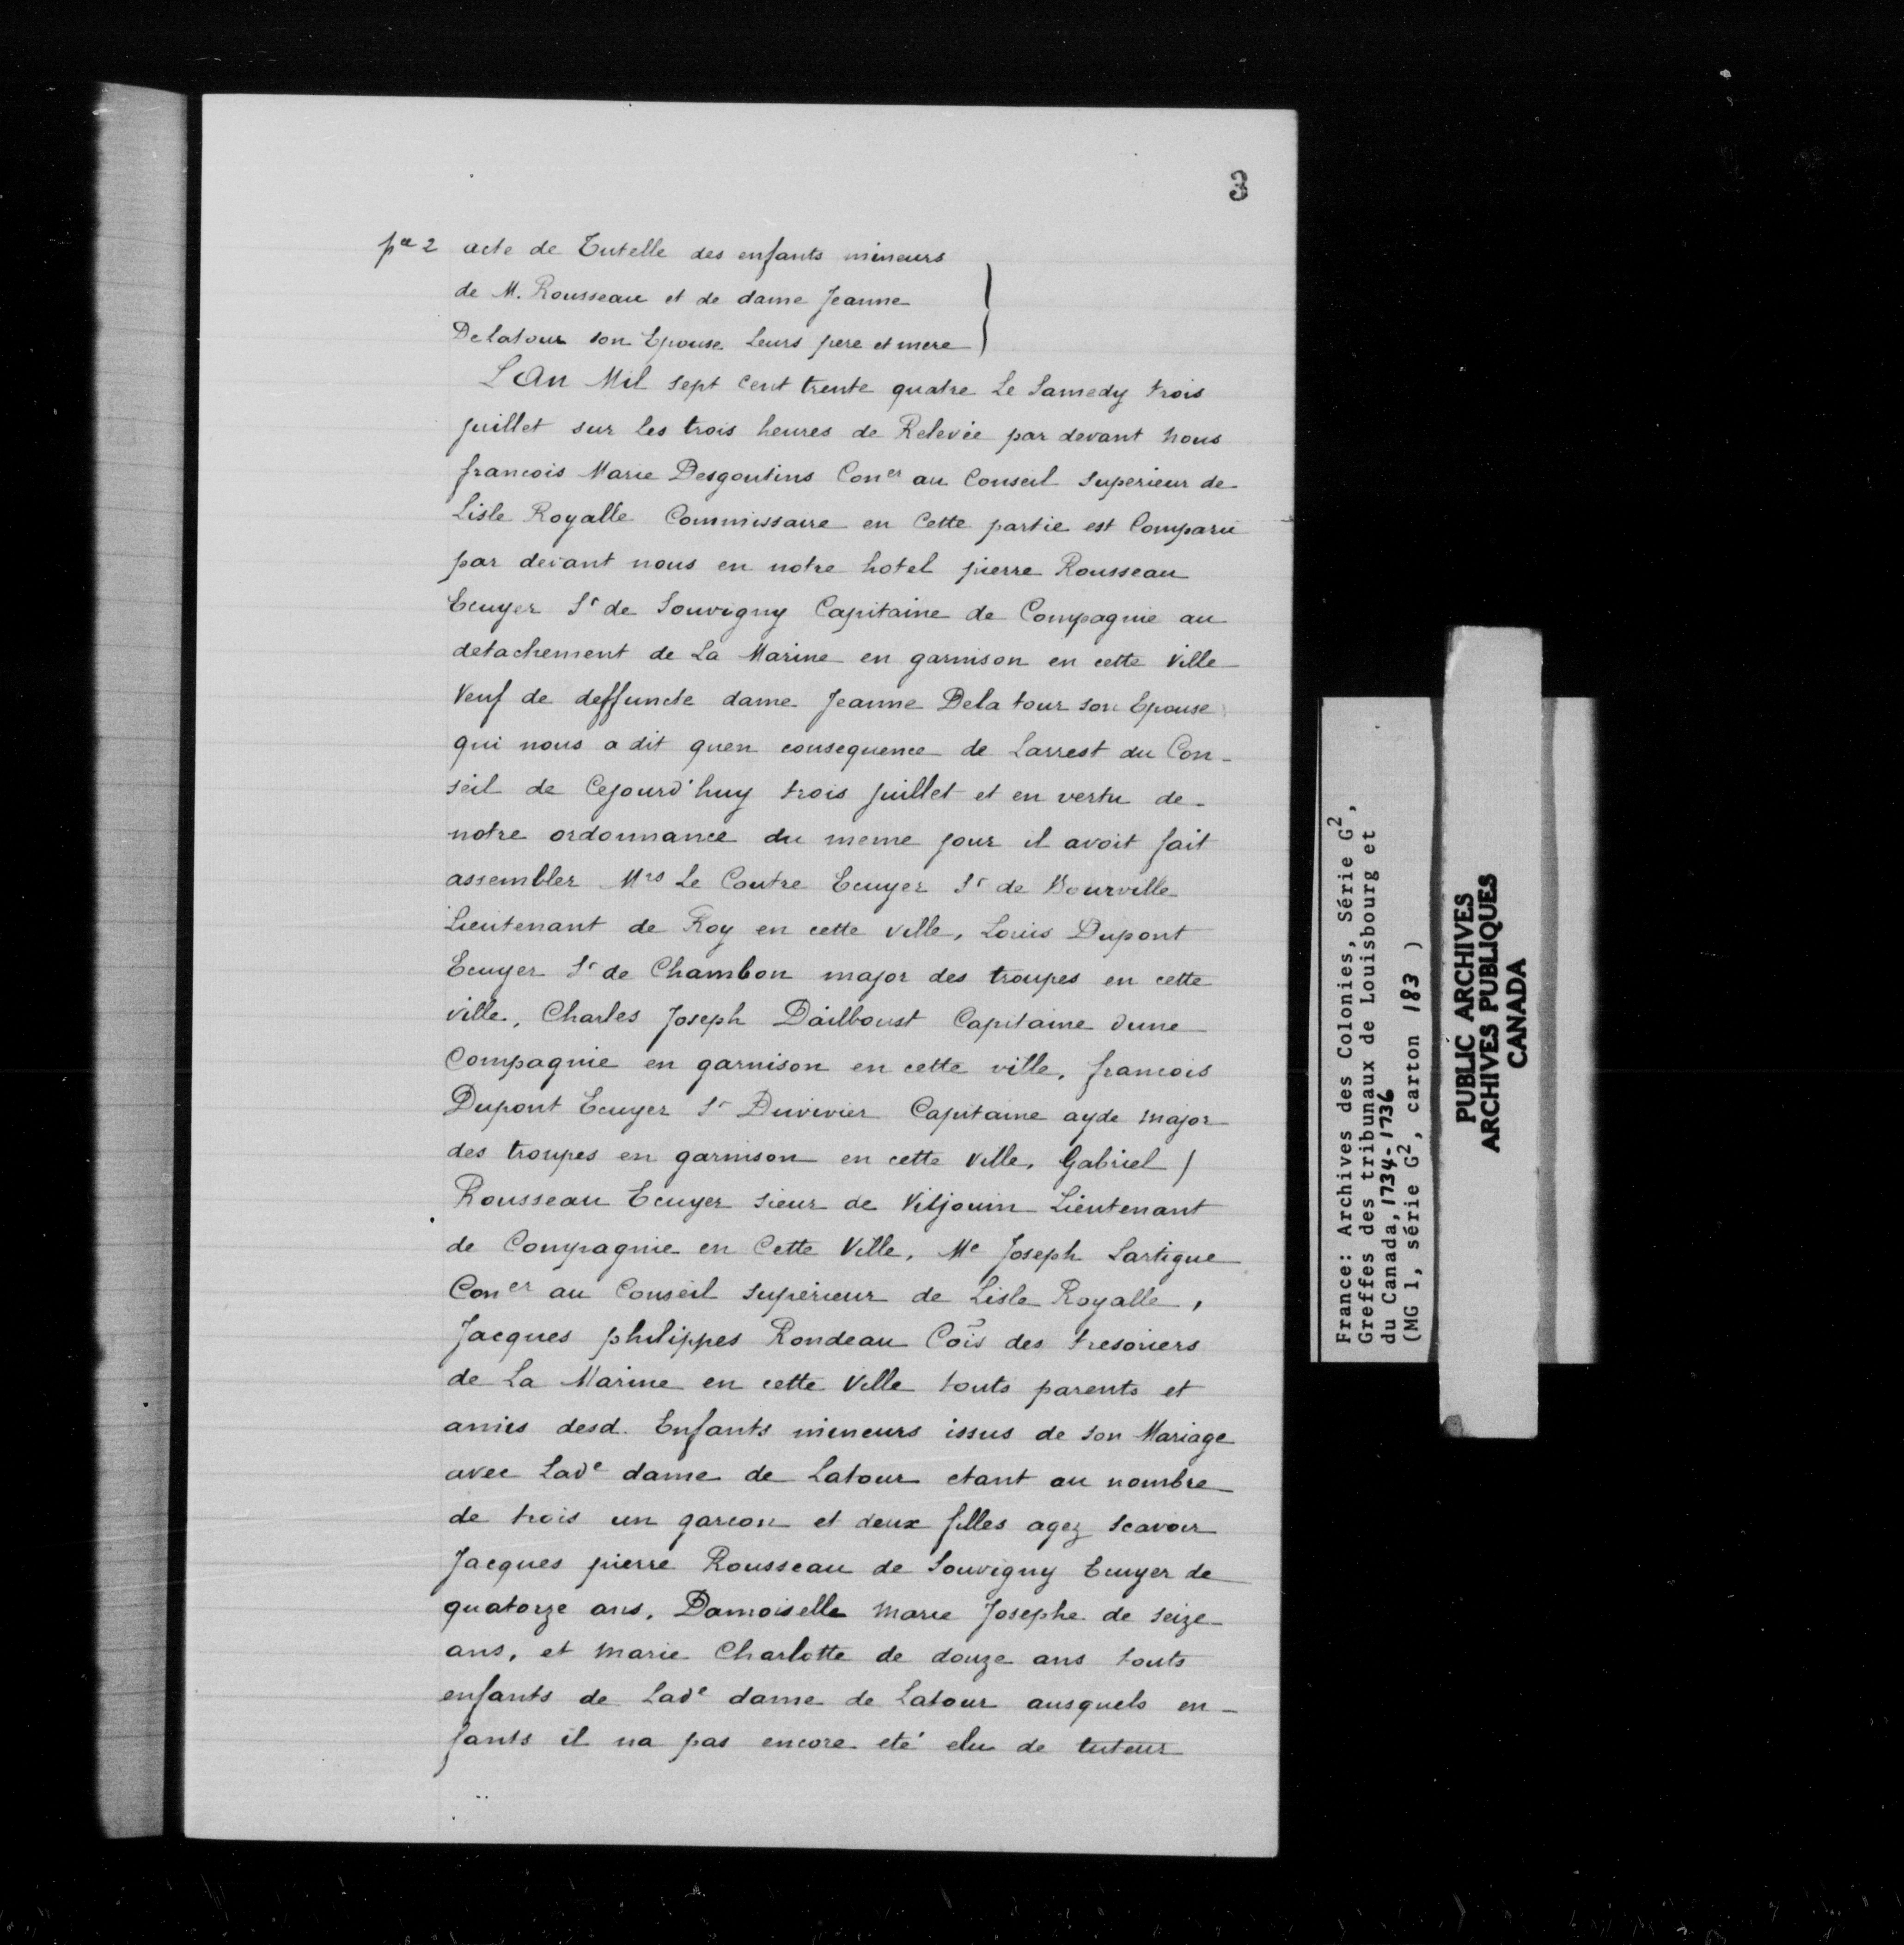 3
pce 2 acte de Tutelle des enfants mineurs
de M. Rousseau et de dame Jeanne
Delatour son Epouse Leurs pere et mere
L An Mil sept cent trente quatre Le Samedy trois
juillet sur les trois heures de Relevée par devant nous
francois Marie Desgoutins Coner au Conseil Superieur de
Lisle Royalle Commissaire en Cette partie est Comparu
par devant nous en notre hotel pierre Rousseau
Ecuyer Sr de Souvigny Capitaine de Compagnie au
detachement de La Marine en garnison en cette Ville
Veuf de deffuncte dame Jeanne Dela tour son Epouse
qui nous a dit quen consequence de Larrest du Con-
seil de Cejourd'huy trois juillet et en vertu de
notre ordonnance du meme jour il avoit fait
assembler Mrs Le Coutre Ecuyer Sr de Bourville
Lieutenant de Roy en cette ville, Louis Dupont
Ecuyer Sr de Chambon major des troupes en cette
ville, Charles Joseph Dailboust Capitaine dune
Compagnie en garnison en cette ville, francois
Dupont Ecuyer Sr Duvivier Capitaine ayde major
des troupes en garnison en cette Ville, Gabriel
Rousseau Ecuyer sieur de Viljouin Lieutenant
de Compagnie en Cette Ville, Me Joseph Lartigue
Coner au Conseil superieur de Lisle Royalle,
Jacques philippes Rondeau Cois des tresoriers
de La Marine en cette Ville touts parents et
amies desd. Enfants mineurs issus de son Mariage
avec Lade dame de Latour etant au nombre
de trois un garcon et deux filles agez scavoir
Jacques pierre Rousseau de Souvigny Ecuyer de
quatorze ans, Damoiselle Marie Josephe de seize
ans, et Marie Charlotte de douze ans touts
enfants de Lade dame de Latour ausquels en-
fants il na pas encore eté elu de tuteur
France: Archives des Colonies, Série G2,
Greffes des tribunaux de Louisbourg et
du Canada, 1734-1736
(MG 1, série G2, carton 183 )
PUBLIC ARCHIVES
ARCHIVES PUBLIQUES
CANADA